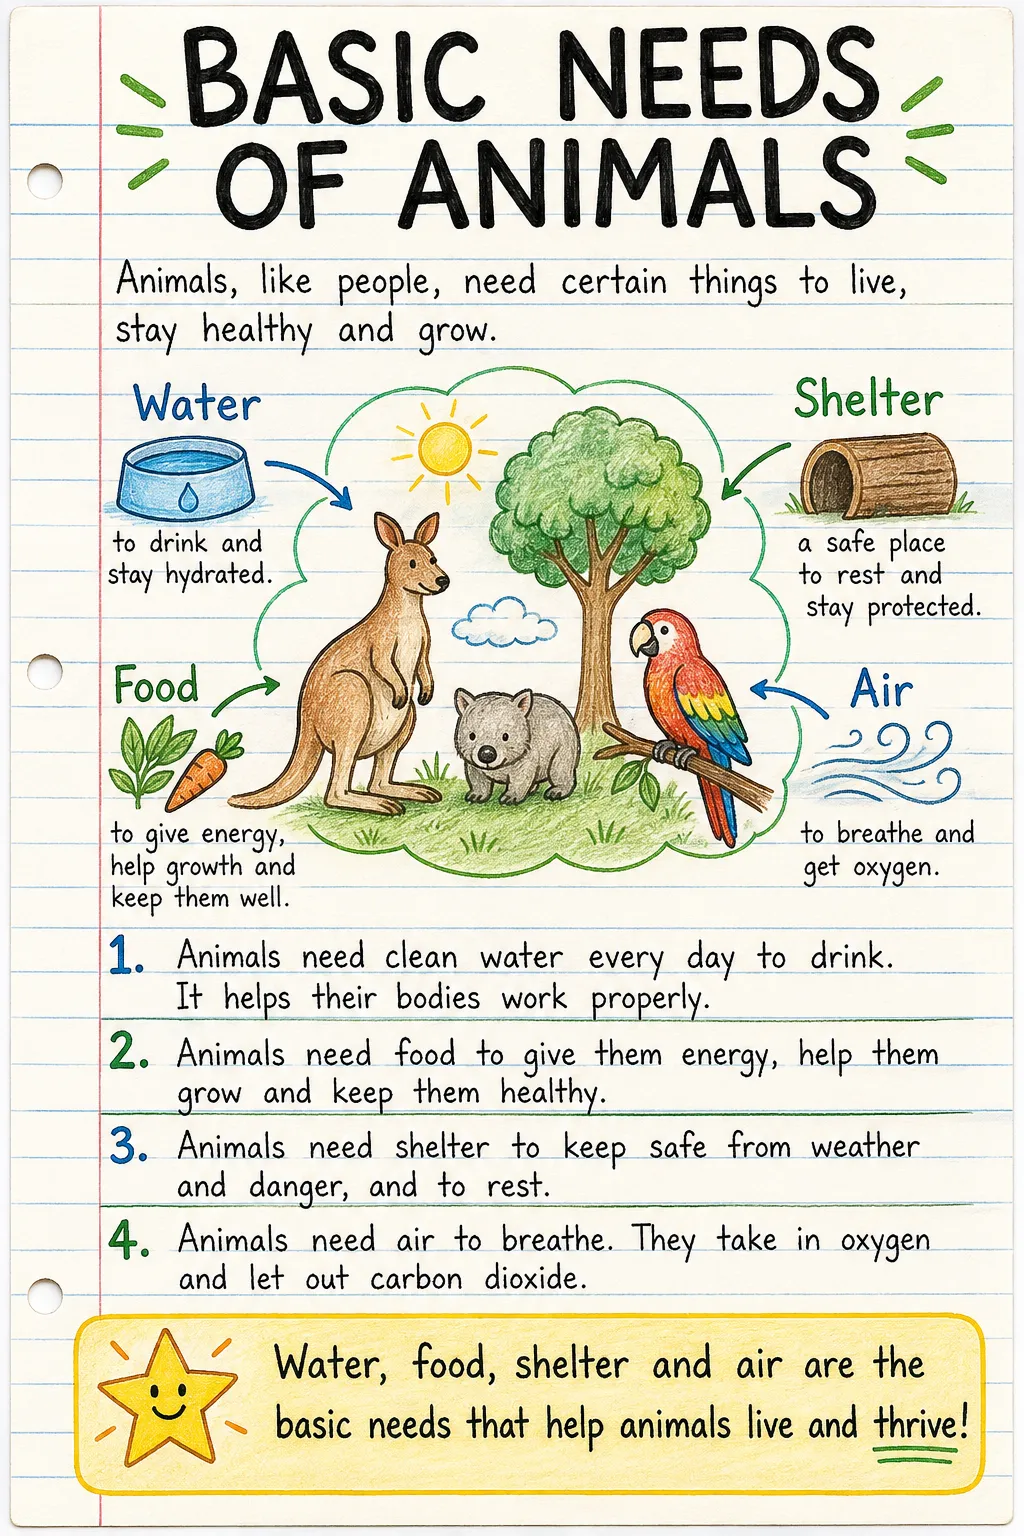 BASIC NEEDS
OF ANIMALS
Animals, like people, need certain things to live,
stay healthy and grow.
Water
to drink and
stay hydrated.
Shelter
a safe place
to rest and
stay protected.
Food
to give energy,
help growth and
keep them well.
Air
to breathe and
get oxygen.
1. Animals need clean water every day to drink.
It helps their bodies work properly.
2. Animals need food to give them energy, help them
grow and keep them healthy.
3. Animals need shelter to keep safe from weather
and danger, and to rest.
4. Animals need air to breathe. They take in oxygen
and let out carbon dioxide.
Water, food, shelter and air are the
basic needs that help animals live and thrive!